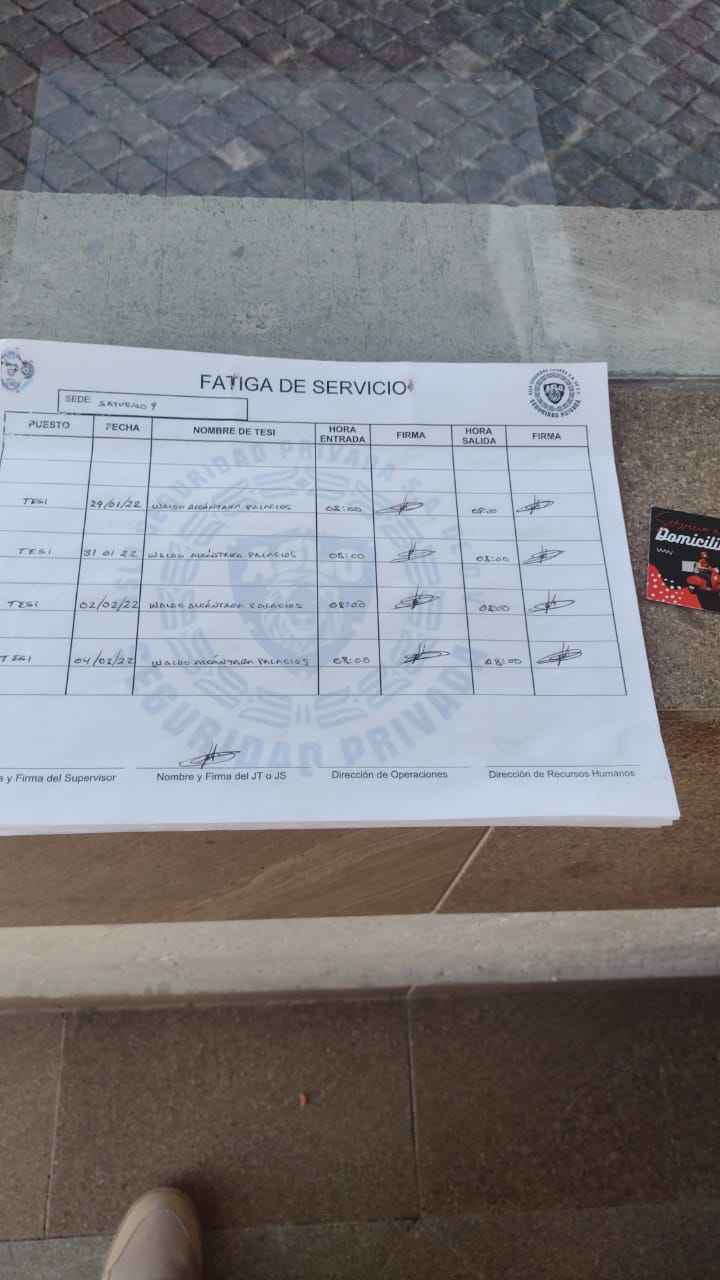 FATIGA DE SERVICIO
SEDE: SATURNO 9
SEGURIDAD PRIVADA
PUESTO FECHA NOMBRE DE TESI HORA ENTRADA FIRMA HORA SALIDA FIRMA
TESI 29/01/22 WALDO ALCÁNTARA PALACIOS 08:00 08:00
TESI 31 01 22 WALDO ALCÁNTARA PALACIOS 08:00 08:00
TESI 02/02/22 WALDO ALCÁNTARA PALACIOS 08:00 08:00
TESI 04/02/22 WALDO ALCÁNTARA PALACIOS 08:00 08:00
SEGURIDAD PRIVADA S.A. DE C.V.
SEGURIDAD PRIVADA
y Firma del Supervisor Nombre y Firma del JT o JS Dirección de Operaciones Dirección de Recursos Humanos
Servicio
Domicili